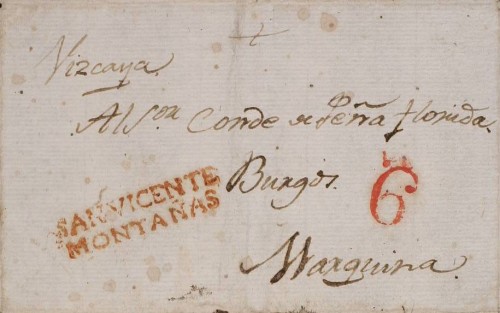 Vizcaya.
Al S.or Conde de Peña florida.
Burgos.
SAN VICENTE
MONTAÑAS
6
Marquina.